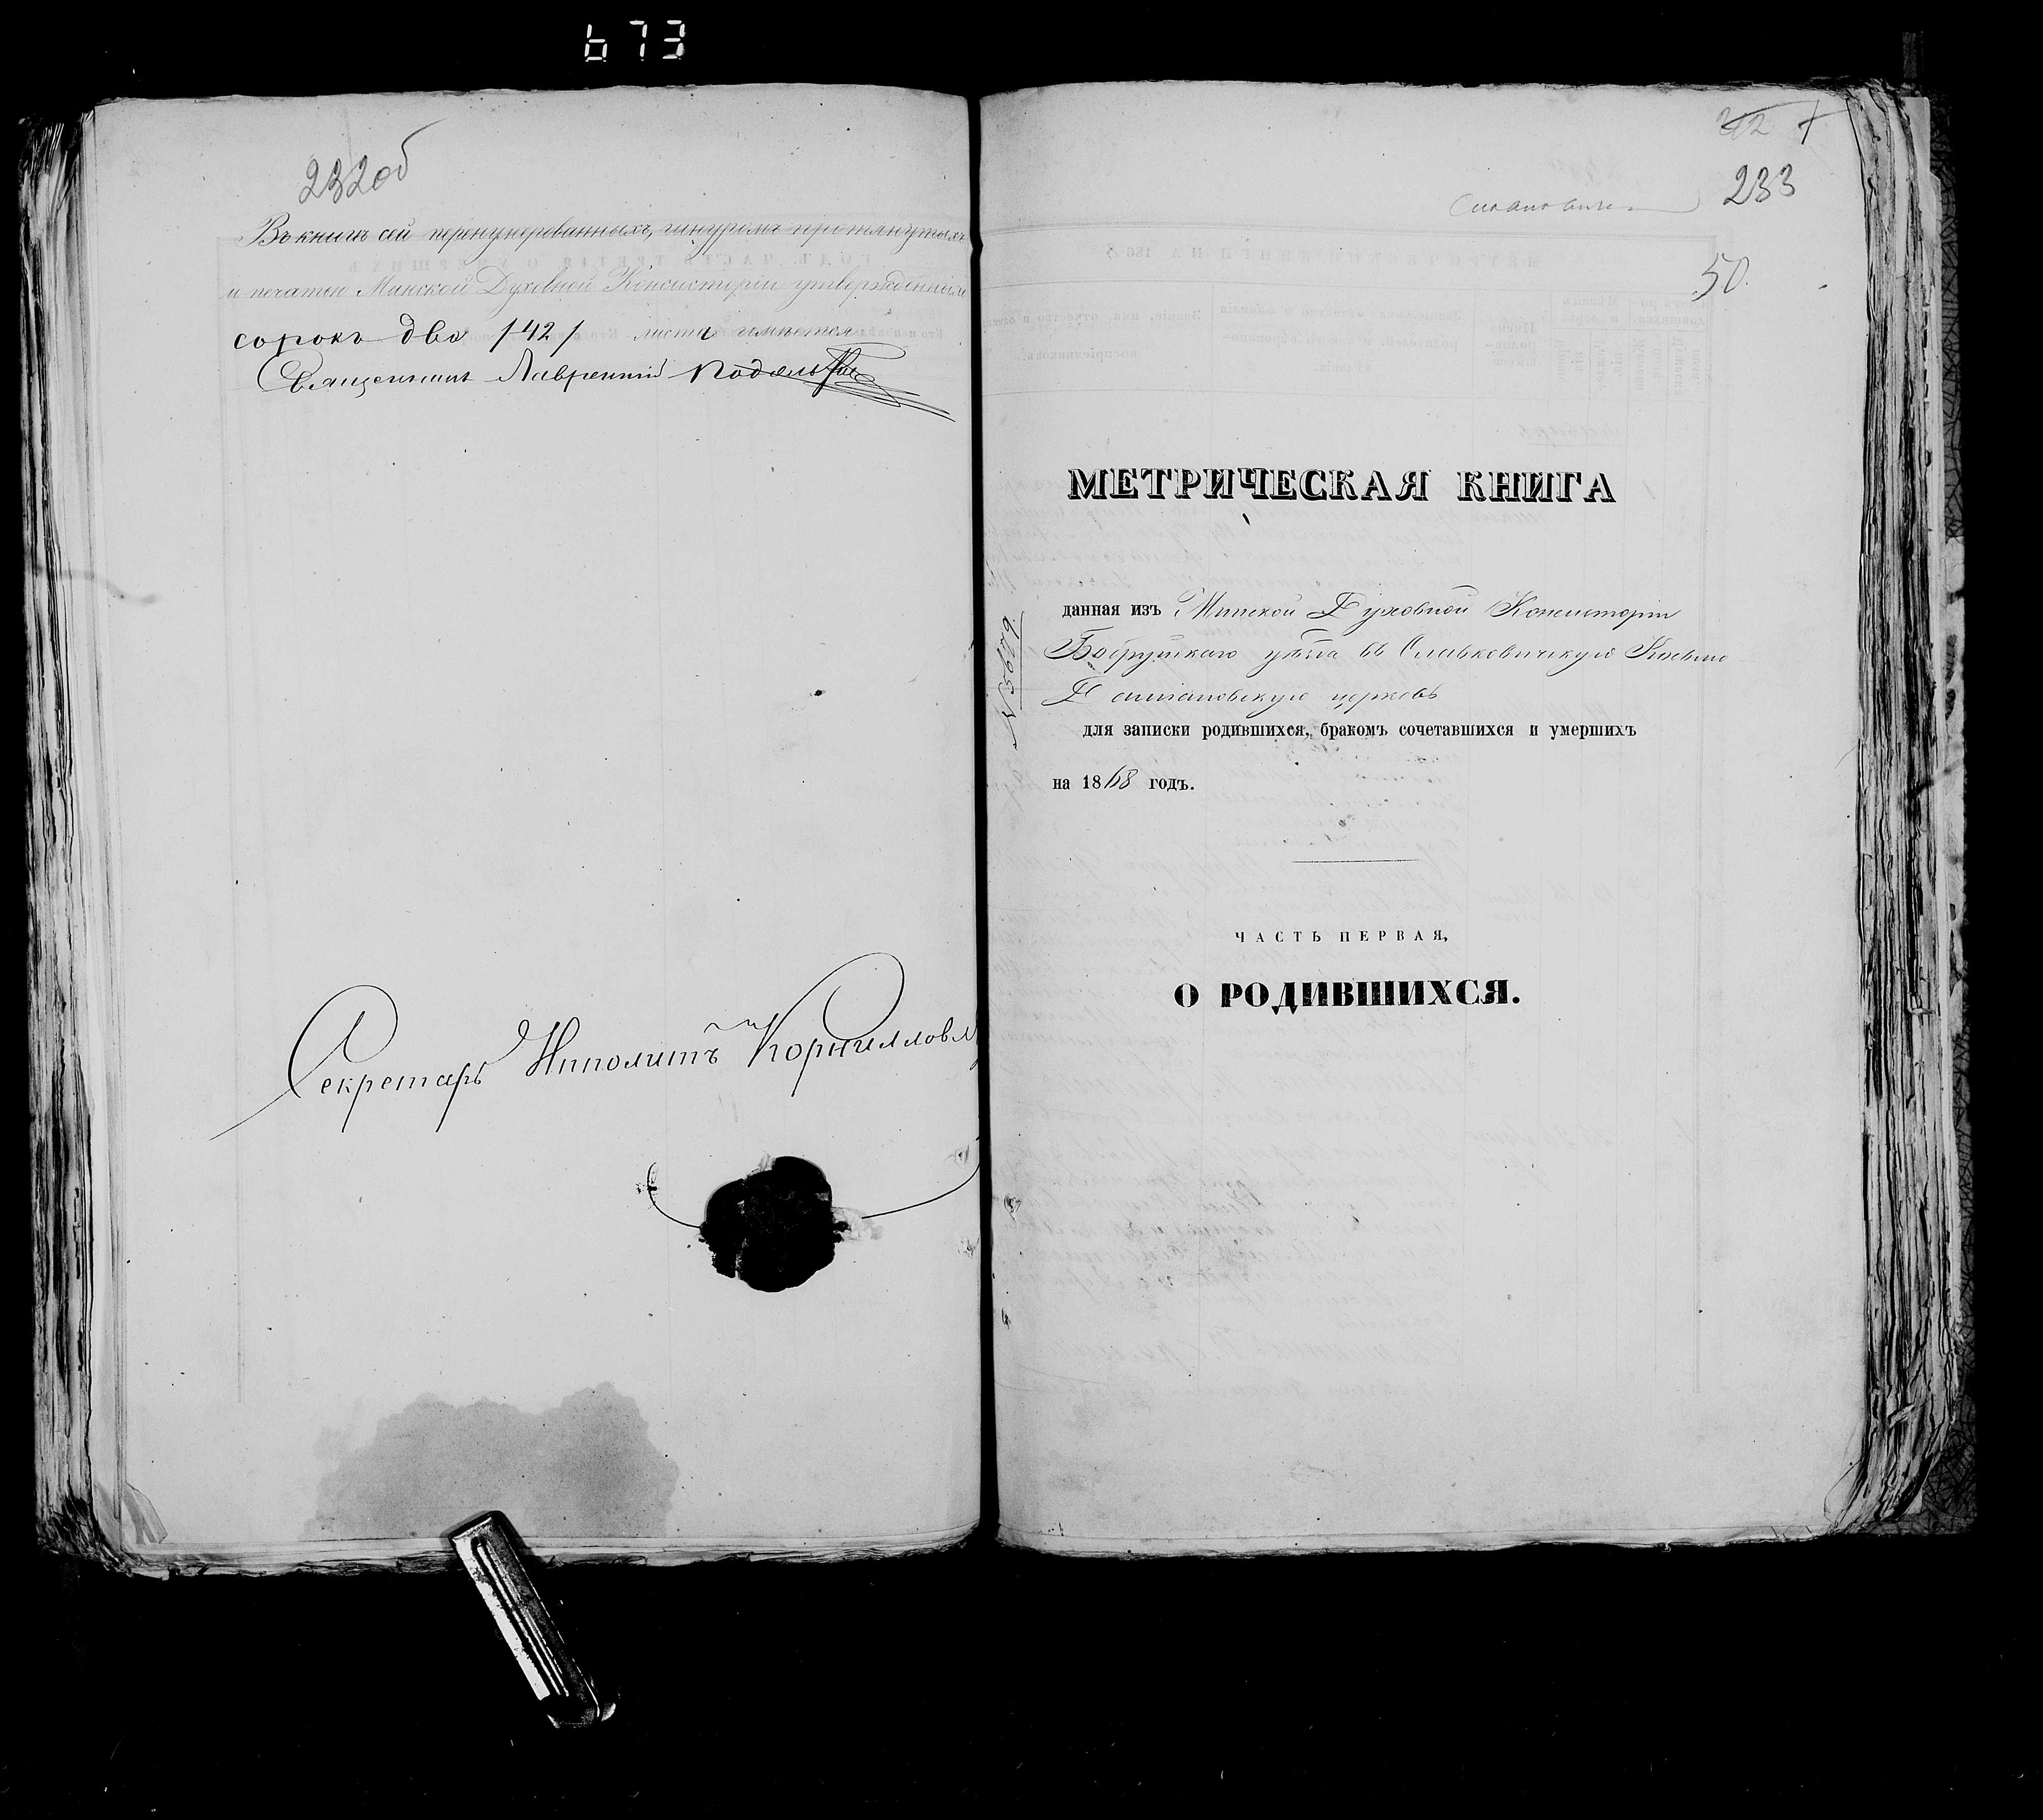 673
232об
Въ книгѣ сей перенумерованныхъ, шнуромъ протянутыхъ
и печатью Минской Духовной Консисторіи утвержденныхъ
сорокъ два /42/ листа имѣется
Священникъ Лаврентій
Секретарь Ипполитъ Корнилловъ
233
50.
МЕТРИЧЕСКАЯ КНИГА
данная изъ Минской Духовной Консисторіи
Бобруйскаго уѣзда въ Славковичскую Косьмо
Даміановскую церковь
для записки родившихся, бракомъ сочетавшихся и умершихъ
на 1868 годъ.
ЧАСТЬ ПЕРВАЯ,
О РОДИВШИХСЯ.